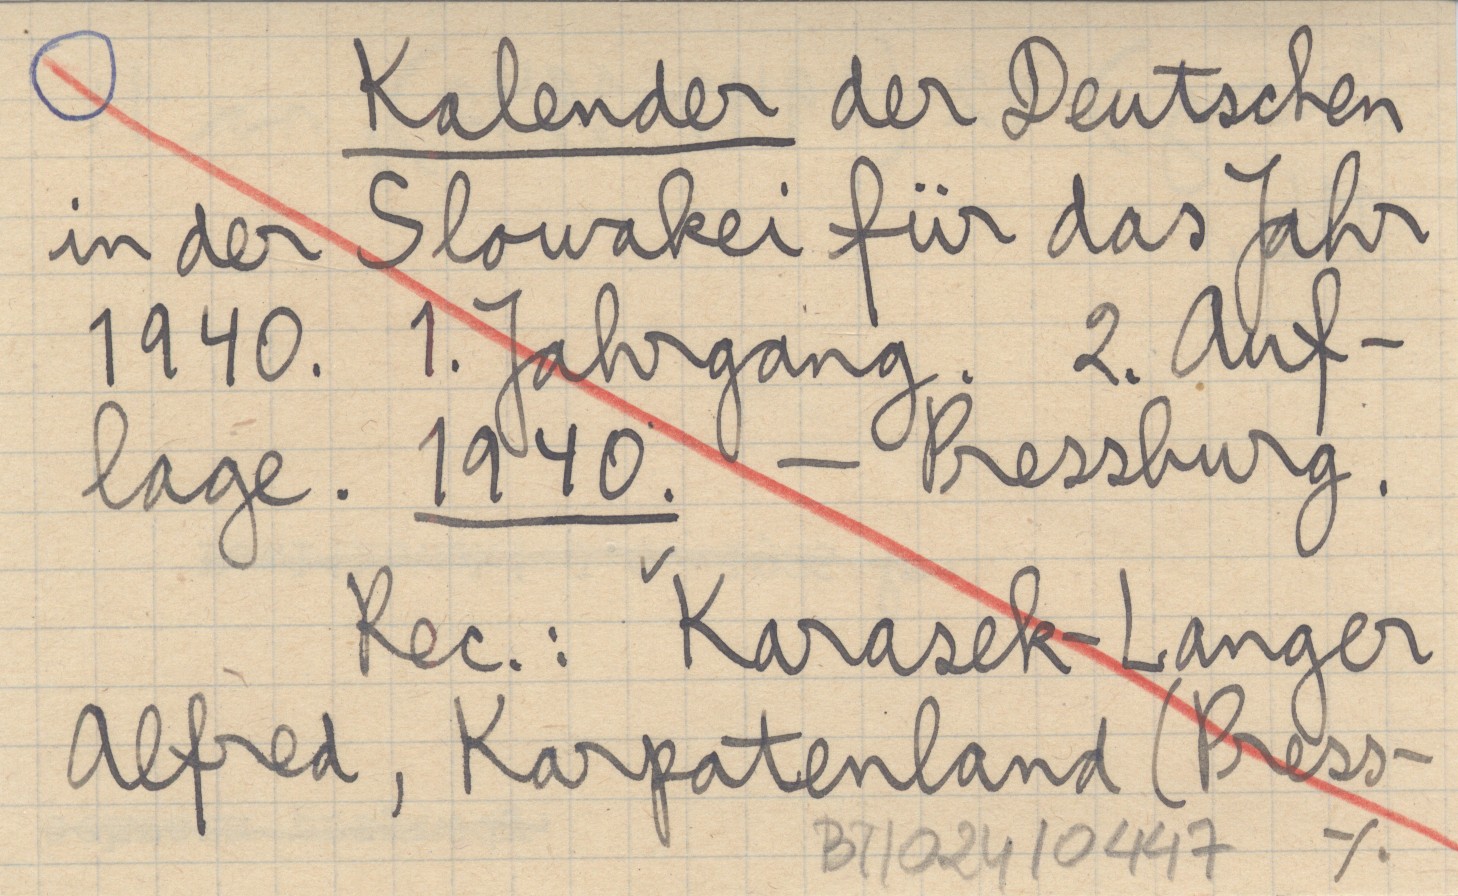 Kalender der Deutschen
in der Slowakei für das Jahr
1940. 1. Jahrgang. 2. Auf-
lage. 1940. — Pressburg.
Rec.: Karasek-Langer
Alfred, Karpatenland (Press-
BT/024/0447 -/.